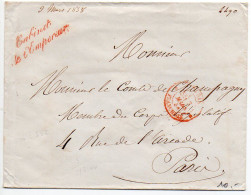 2 Mars 1858
Cabinet
de l'Empereur
Monsieur
Monsieur le Comte de Champagny
Membre du Corps Législatif
4 Rue de l'Arcade
Paris